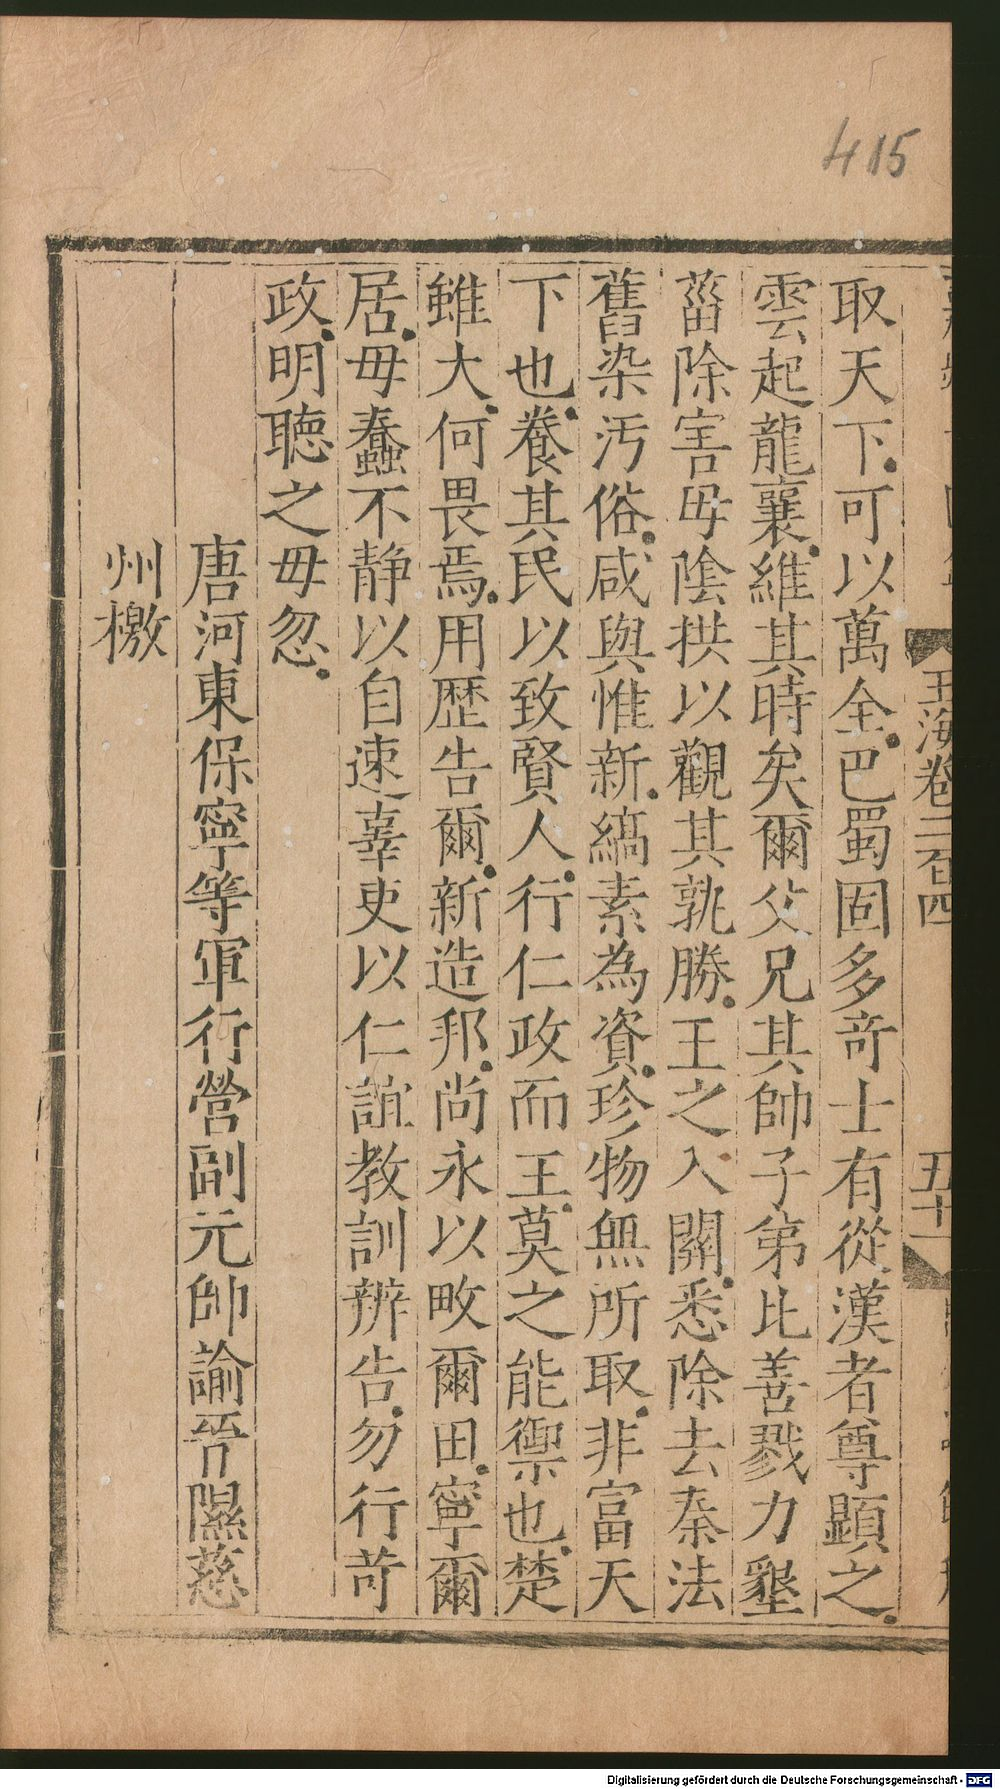 415
玉海卷二百四
五十一
取天下可以萬全巴蜀固多奇士有從漢者尊顯之
雲起龍襄維其時矣爾父兄其帥子弟比善戮力墾
菑除害毋陰拱以觀其孰勝王之入關悉除去秦法
舊染汚俗咸與惟新縞素為資珍物無所取非富天
下也養其民以致賢人行仁政而王莫之能禦也楚
雖大何畏焉用歷告爾新造邦尚永以畋爾田寧爾
居毋蠢不静以自速辜吏以仁誼教訓辨告勿行苛
政明聽之毋忽
唐河東保寧等軍行營副元帥諭晉隰慈
州檄
Digitalisierung gefördert durch die Deutsche Forschungsgemeinschaft - DFG